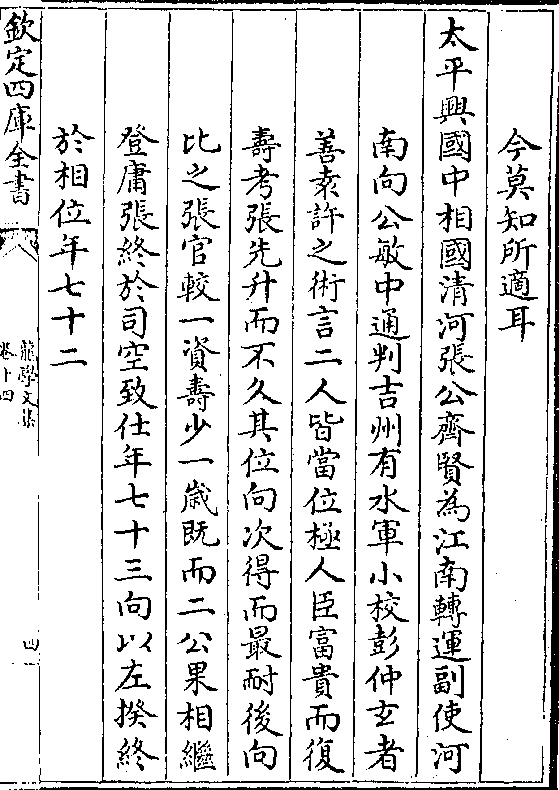 今莫知所適耳
太平興國中相國清河張公齊賢為江南轉運副使河
南向公敏中通判吉州有水軍小校彭仲玄者
善袁許之術言二人皆當位極人臣富貴而復
壽考張先升而不久其位向次得而最耐後向
比之張官較一資壽少一歳既而二公果相繼
登庸張終於司空致仕年七十三向以左揆終
於相位年七十二
欽定四庫全書
龍學文集
卷十四
四